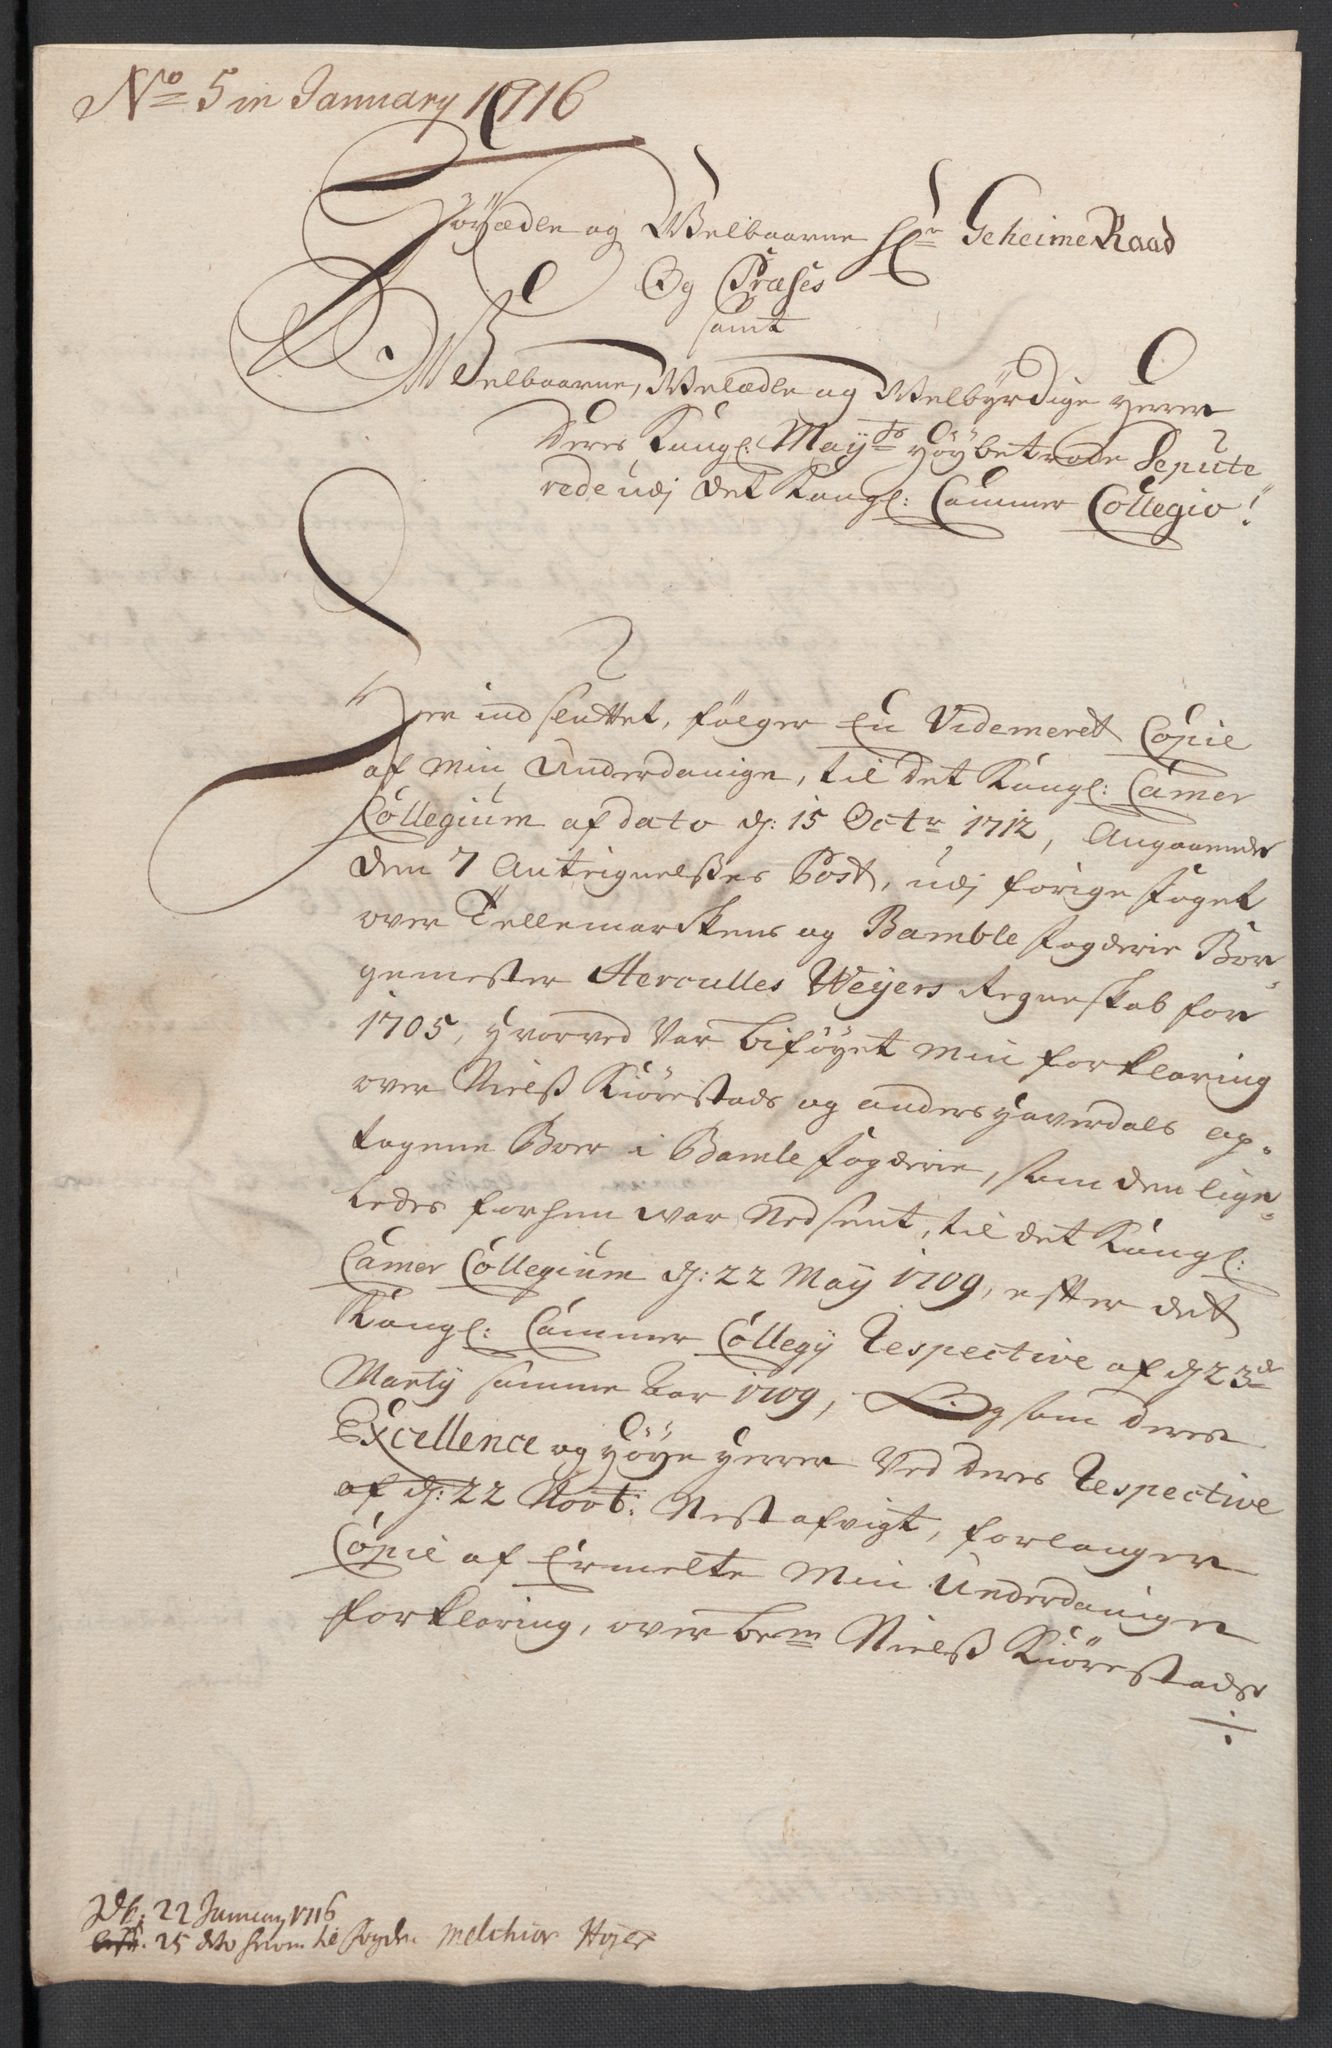 No 5 in January 1716
Höyædle og Welbaarne Hr Geheime Raad
Og Præses
samt
Welbaarne, Welædle og Welbyrdige Herrer
Deres Kongl: Mayts Höybetrode Depute
rede udj Det Kongl: Cammer Collegio!
Her indsluttet, følger En Videmeret Copie
af Min Underdanige, til Det Kongl: Camer
Collegium af dato d: 15 Octr 1712, Angaaende
Den 7 Antegnelsses Post, udj forige foget
over Tellemarkens og Bamble fogderie Bor-
gemester Herculles Weyers Regneskab for
1705, Hvorved Var biføyet Min forklaring
over Nielß Kiørestads og anders Haverdals op-
tagene Boer i Bamle fogderie, som den lige-
ledes forhen war Nedsent, til det Kongl:
Camer Collegium d: 22 May 1709, efter det
Kongl: Cammer Collegy Respective af d 23de
Marty samme Aar 1709, Ligesom deres
Excellence og Höye Herrer Ved deres Respective
af d: 22 Novb: Nest afvigt, forlanger
Copie af Ermelte Min Underdanige
forklaring, over bem Nielß Kiørestads
22 January 1716
25 dito til Fogden Melchior Hoyer